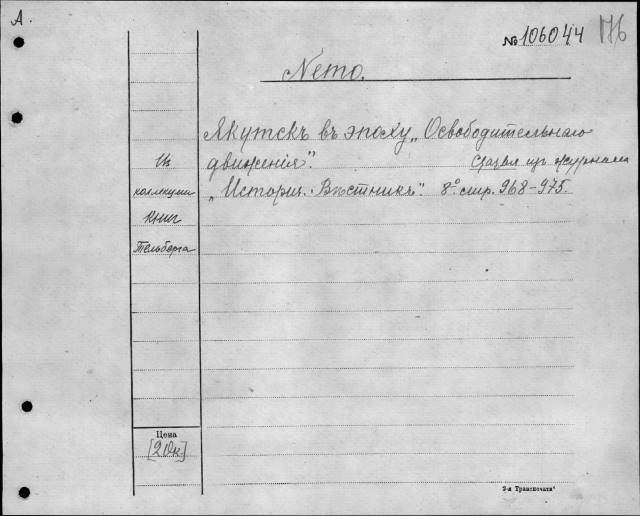 А.
№ 106044 176
Nemo.
Якутскъ въ эпоху „Освободительнаго
движенія".
изъ журнала
„Историч. Вѣстникъ". 8° стр. 968-975.
Из
коллекции
книг
Тельберга
Цена
[20к]
2-я Транспечати"